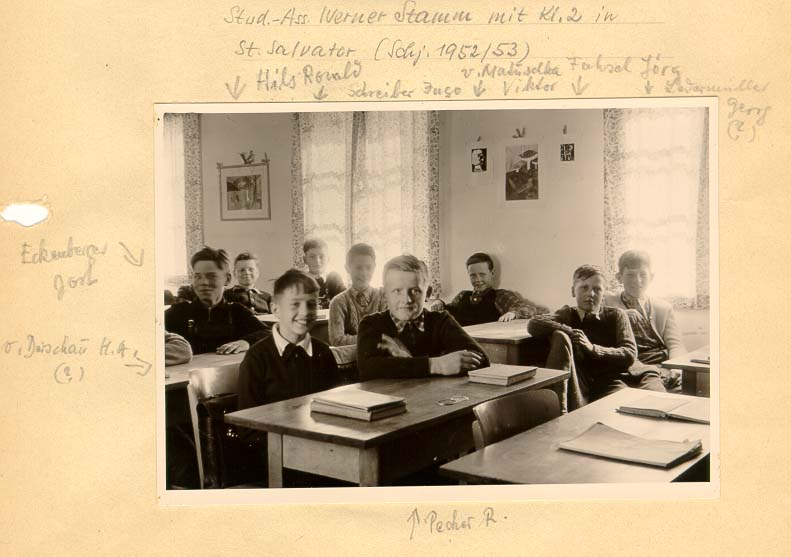 Stud.-Ass. Werner Stamm mit Kl. 2 in
St. Salvator (Schj. 1952/53)
Hils Ronald
Schreiber Ingo
v. Matuschka
Viktor
Jörg
Ledermüller
Georg
(?)
Eckenberger
Jost
v. Dirschau H.A.
(?)
Pecher R.